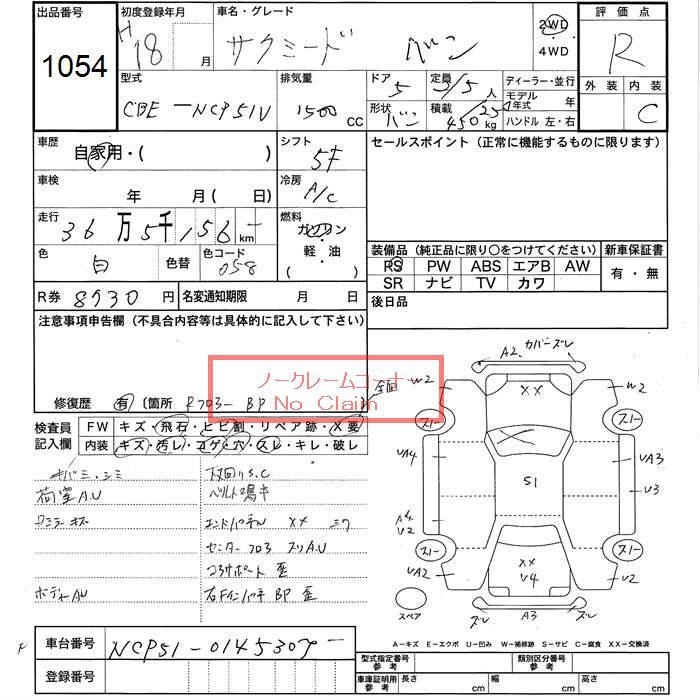 出品番号 初度登録年月 車名・グレード 評価点
1054 H 18 月 サクシード バン 2WD ・ 4WD R
型式 排気量 ドア 定員 ディーラー・並行 外装 内装
CBE-NCP51V 1500 CC 5 3/5 人 モデル年式 年 C
形状 バン 積載 450/250 kg ハンドル 左・右
車歴 シフト セールスポイント (正常に機能するものに限ります)
自家用・( ) 5F
車検 冷房
年 月(日) A/C
走行 燃料
36万5千156 km ガソリン
色 色替 色コード 軽・油
白 058 ( )
装備品 (純正品に限り○をつけてください) 新車保証書
PS PW ABS エアB AW 有・無
SR ナビ TV カワ
R券 8730 円 名変通知期限 月 日 後日品
注意事項申告欄 (不具合内容等は具体的に記入して下さい)
ノークレームコーナー
No Claim
修復歴 有 〔箇所 Rフロアー BP 〕
検査員 FW キズ・飛石・ヒビ割・リペア跡・X要 全面
記入欄 内装 キズ・汚レ・コゲ・穴・スレ・キレ・破レ
下回りS.C
荷室A.U ベルト鳴キ
エンドパネル XX ミワ
センターフロア ズリA.U
コアサポート 歪
ボディーAU 右Fインパネ BP 歪
A2 カバーズレ
W2 XX W2
スレ スレ
VA4 S1 VA3
U3
A4
U2
スレ XX スレ
VA2 V4 U2
スペア ズレ A3 ズレ
A-キズ E-エクボ U-凹み W-補修跡 S-サビ C-腐食 XX-交換済
車台番号 NCP51-0145307-
登録番号
型式指定番号 参考 類別区分番号 参考
車庫証明用 参考 長さ cm 幅 cm 高さ cm